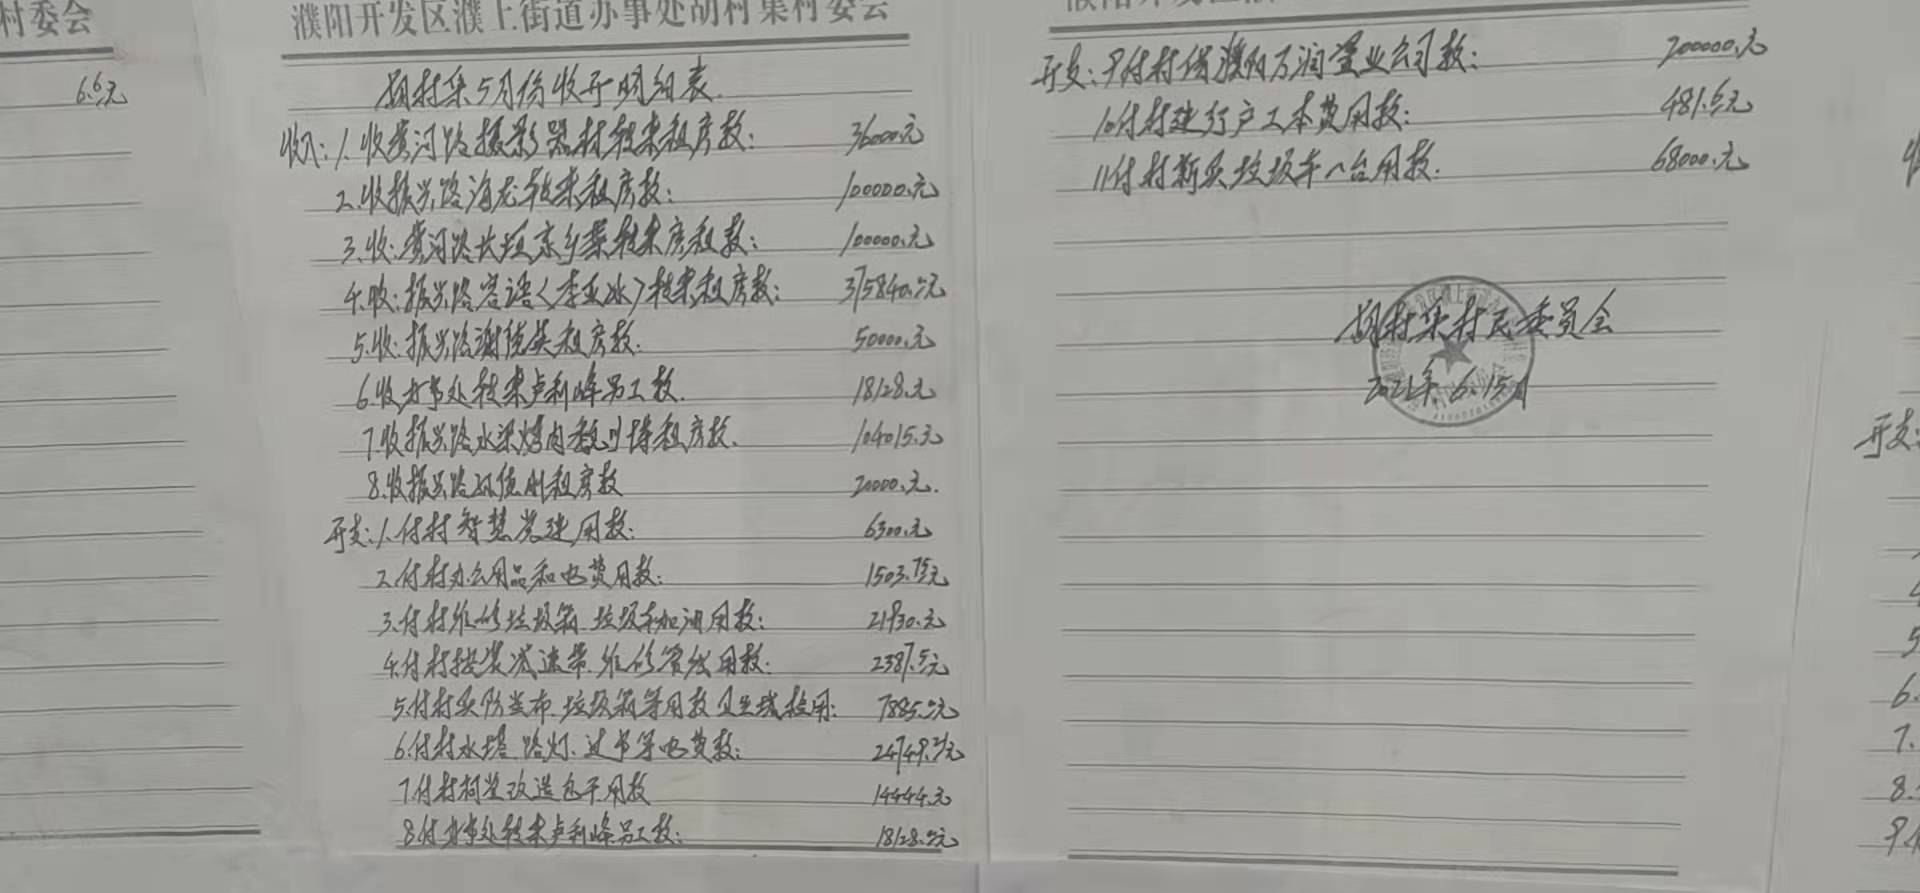 村委会
6.6元
濮阳开发区濮上街道办事处胡村集村委会
胡村集5月份收开明细表.
收入:1.收黄河路摄影器材转来租房款: 36000.元
2.收振兴路海龙转来租房款: 100000.元
3.收:黄河路长垣京乡菜转来房租款: 100000.元
4.收:振兴路容语<李亚冰>转来租房款: 375840.00元
5.收:振兴路谢德英租房款. 50000.元
6.收办事处转来卢利峰员工款. 18128.元
7.收振兴路水果烤肉租房款. 104015.元
8.收振兴路租房款 20000.元.
开支:1.付村智慧党建用款: 6300.元
2.付村办公用品和电费用款: 1503.75元
3.付村维修垃圾箱.垃圾车加油用款: 21930.元
4.付村按装减速带.维修管线用款: 2387.5元
5.付村买防尘布.垃圾箱等用款 7885.00元
6.付村水塔.路灯.过节等电费款: 元
7.付村祠堂改造包干用款 14444.元
8.付办事处转来卢利峰员工款: 18128.00元
开支:9.付村借濮阳万润置业公司款: 200000.元
10.付村建行户工本费用款: 481.6元
11付村新买垃圾车一台用款. 68000.元
胡村集村民委员会
2021年.6.15日
开支:
5
6.
7.
8.
9.